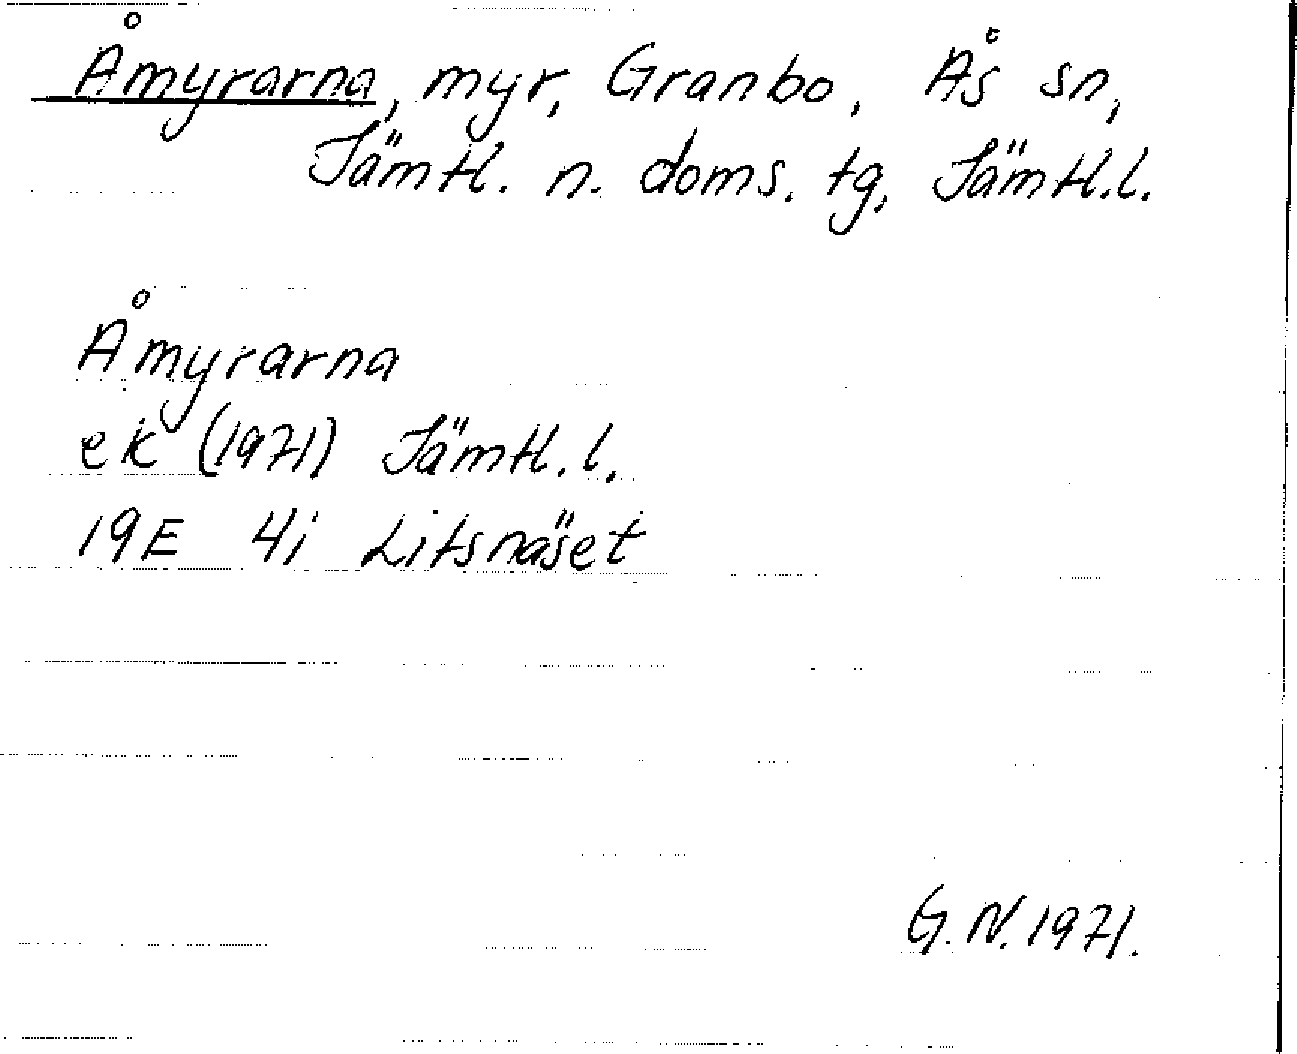 Åmyrarna, myr, Granbo, Ås sn,
Jämtl. n. doms. tg, Jämtl.l.
Åmyrarna
ek (1971) Jämtl.l.
19E 4i Litsnäset
G.N. 1971.